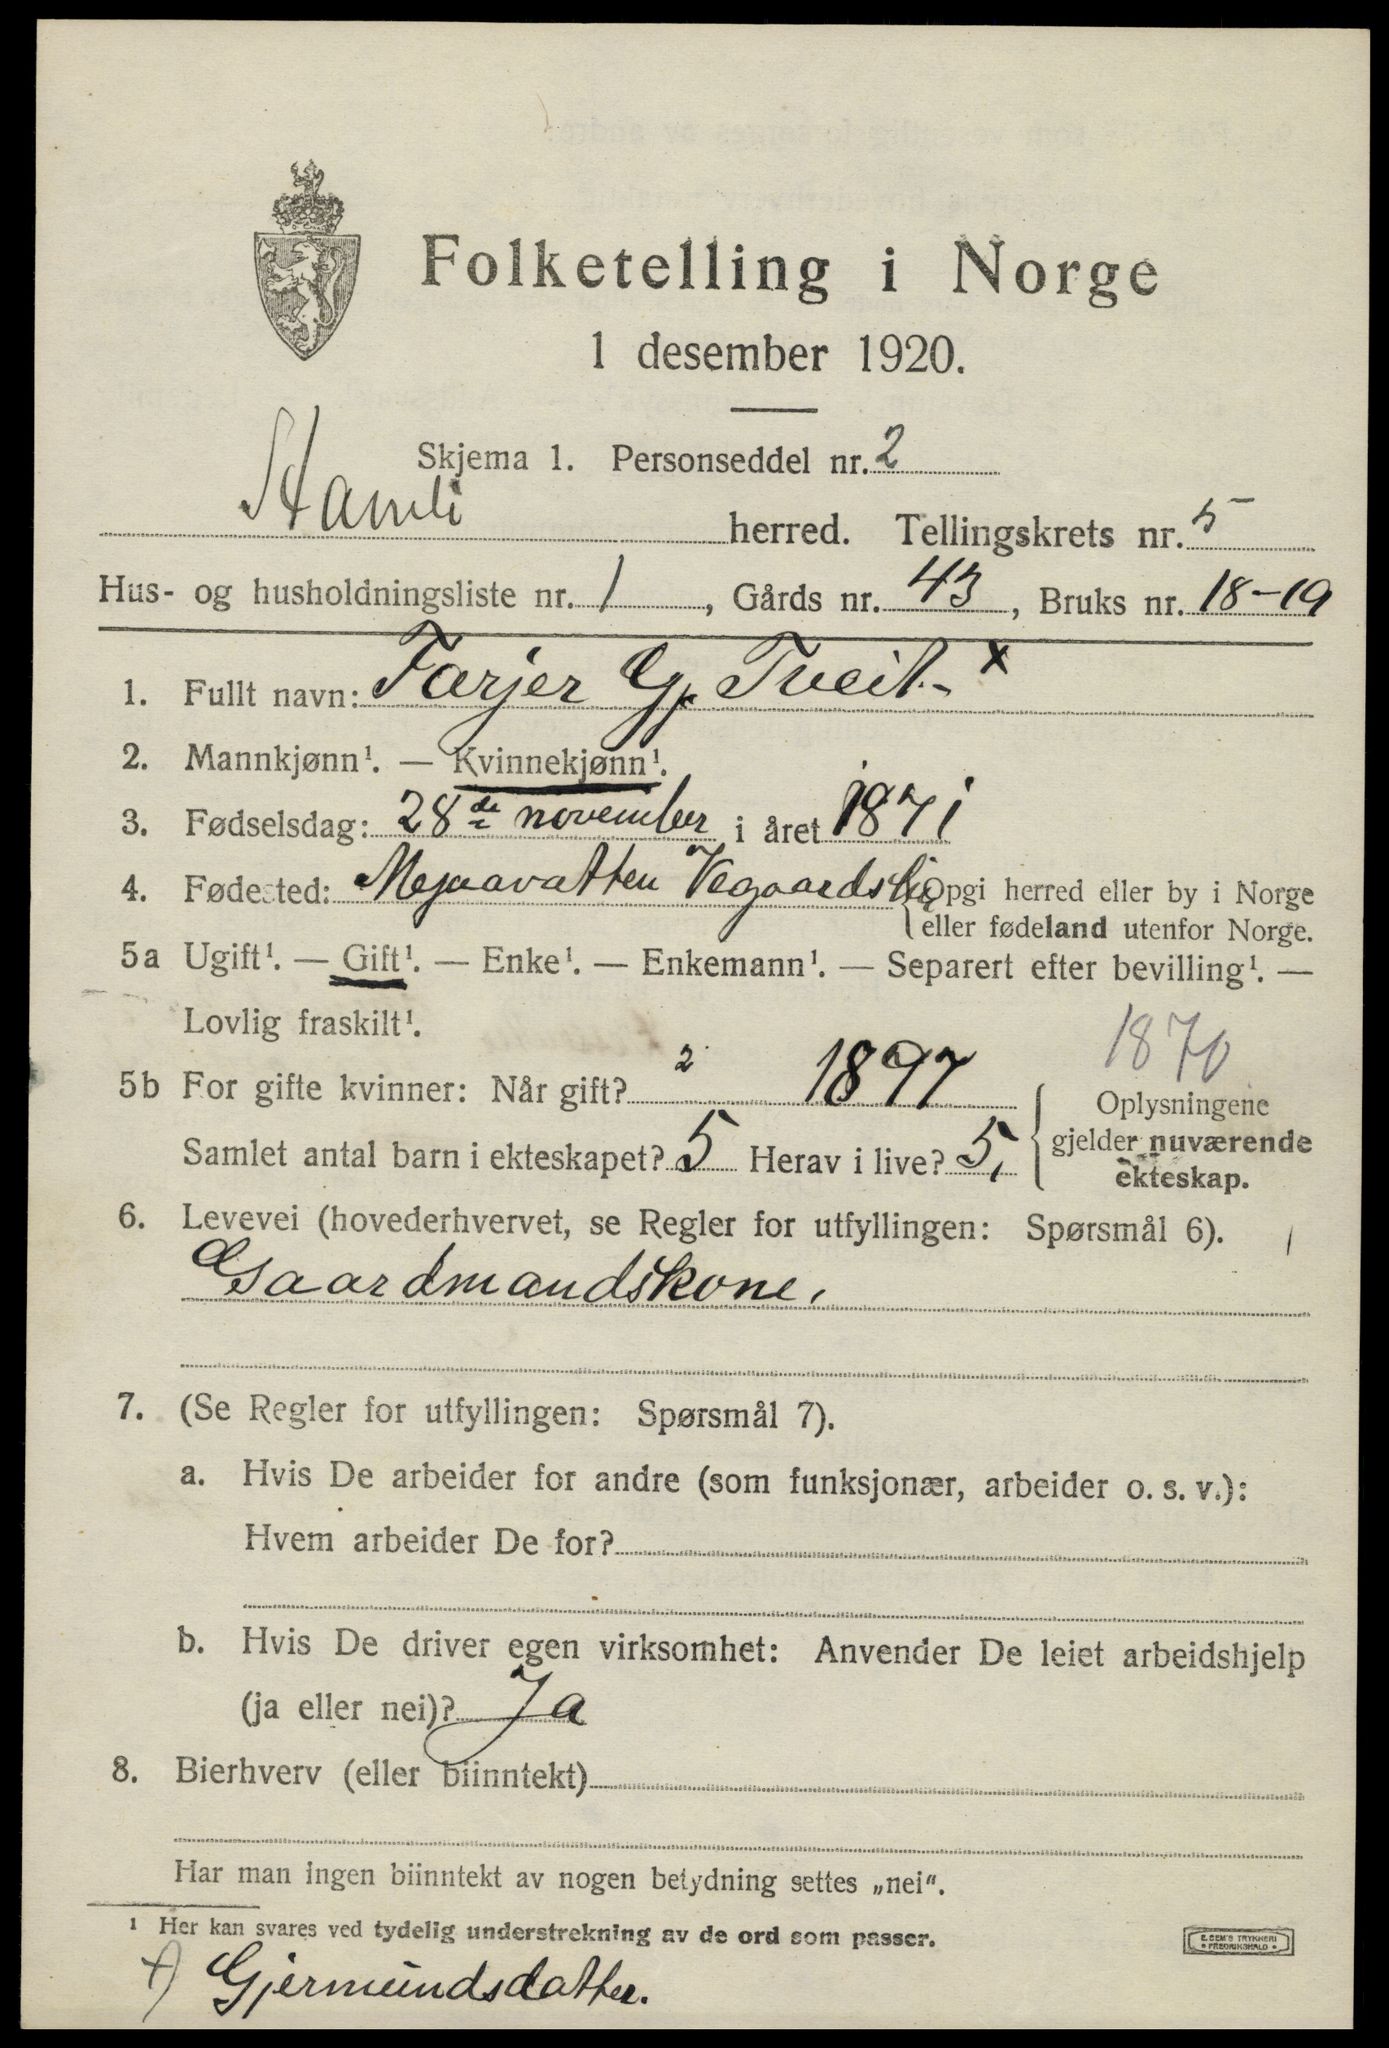 Folketelling i Norge
1 desember 1920.
Skjema 1. Personseddel nr. 2
herred. Tellingskrets nr. 5
Hus- og husholdningsliste nr. 1, Gårds nr. 43, Bruks nr. 18-19
1. Fullt navn: Tarjer Gj. Tveit. x
2. Mannkjønn¹. — Kvinnekjønn¹.
3. Fødselsdag: 28de november i året 1871
4. Fødested: Mejaavatten Vegaardslie {Opgi herred eller by i Norge
eller fødeland utenfor Norge.
5a Ugift¹. — Gift¹. — Enke¹. — Enkemann¹. — Separert efter bevilling¹. —
Lovlig fraskilt¹.
1870
5b For gifte kvinner: Når gift? 2 1897
Samlet antal barn i ekteskapet? 5 Herav i live? 5,
Oplysningene
gjelder nuværende
ekteskap.
6. Levevei (hovederhvervet, se Regler for utfyllingen: Spørsmål 6).
Gaardmandskone.
7. (Se Regler for utfyllingen: Spørsmål 7).
a. Hvis De arbeider for andre (som funksjonær, arbeider o. s. v.):
Hvem arbeider De for?
b. Hvis De driver egen virksomhet: Anvender De leiet arbeidshjelp
(ja eller nei)? Ja
8. Bierhverv (eller biinntekt)
Har man ingen biinntekt av nogen betydning settes „nei".
¹ Her kan svares ved tydelig understrekning av de ord som passer.
E. SEM'S TRYKKERI
FREDRIKSHALD
x) Gjermundsdatter.